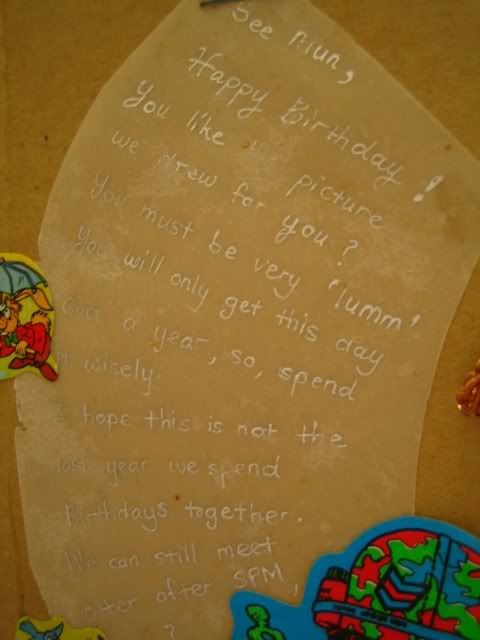 See Mun,
Happy Birthday!
You like picture
we drew for you?
You must be very 'lumm'
You will only get this day
Once a year, so, spend
it wisely.
I hope this is not the
last year we spend
Birthdays together.
We can still meet
after SPM,
?